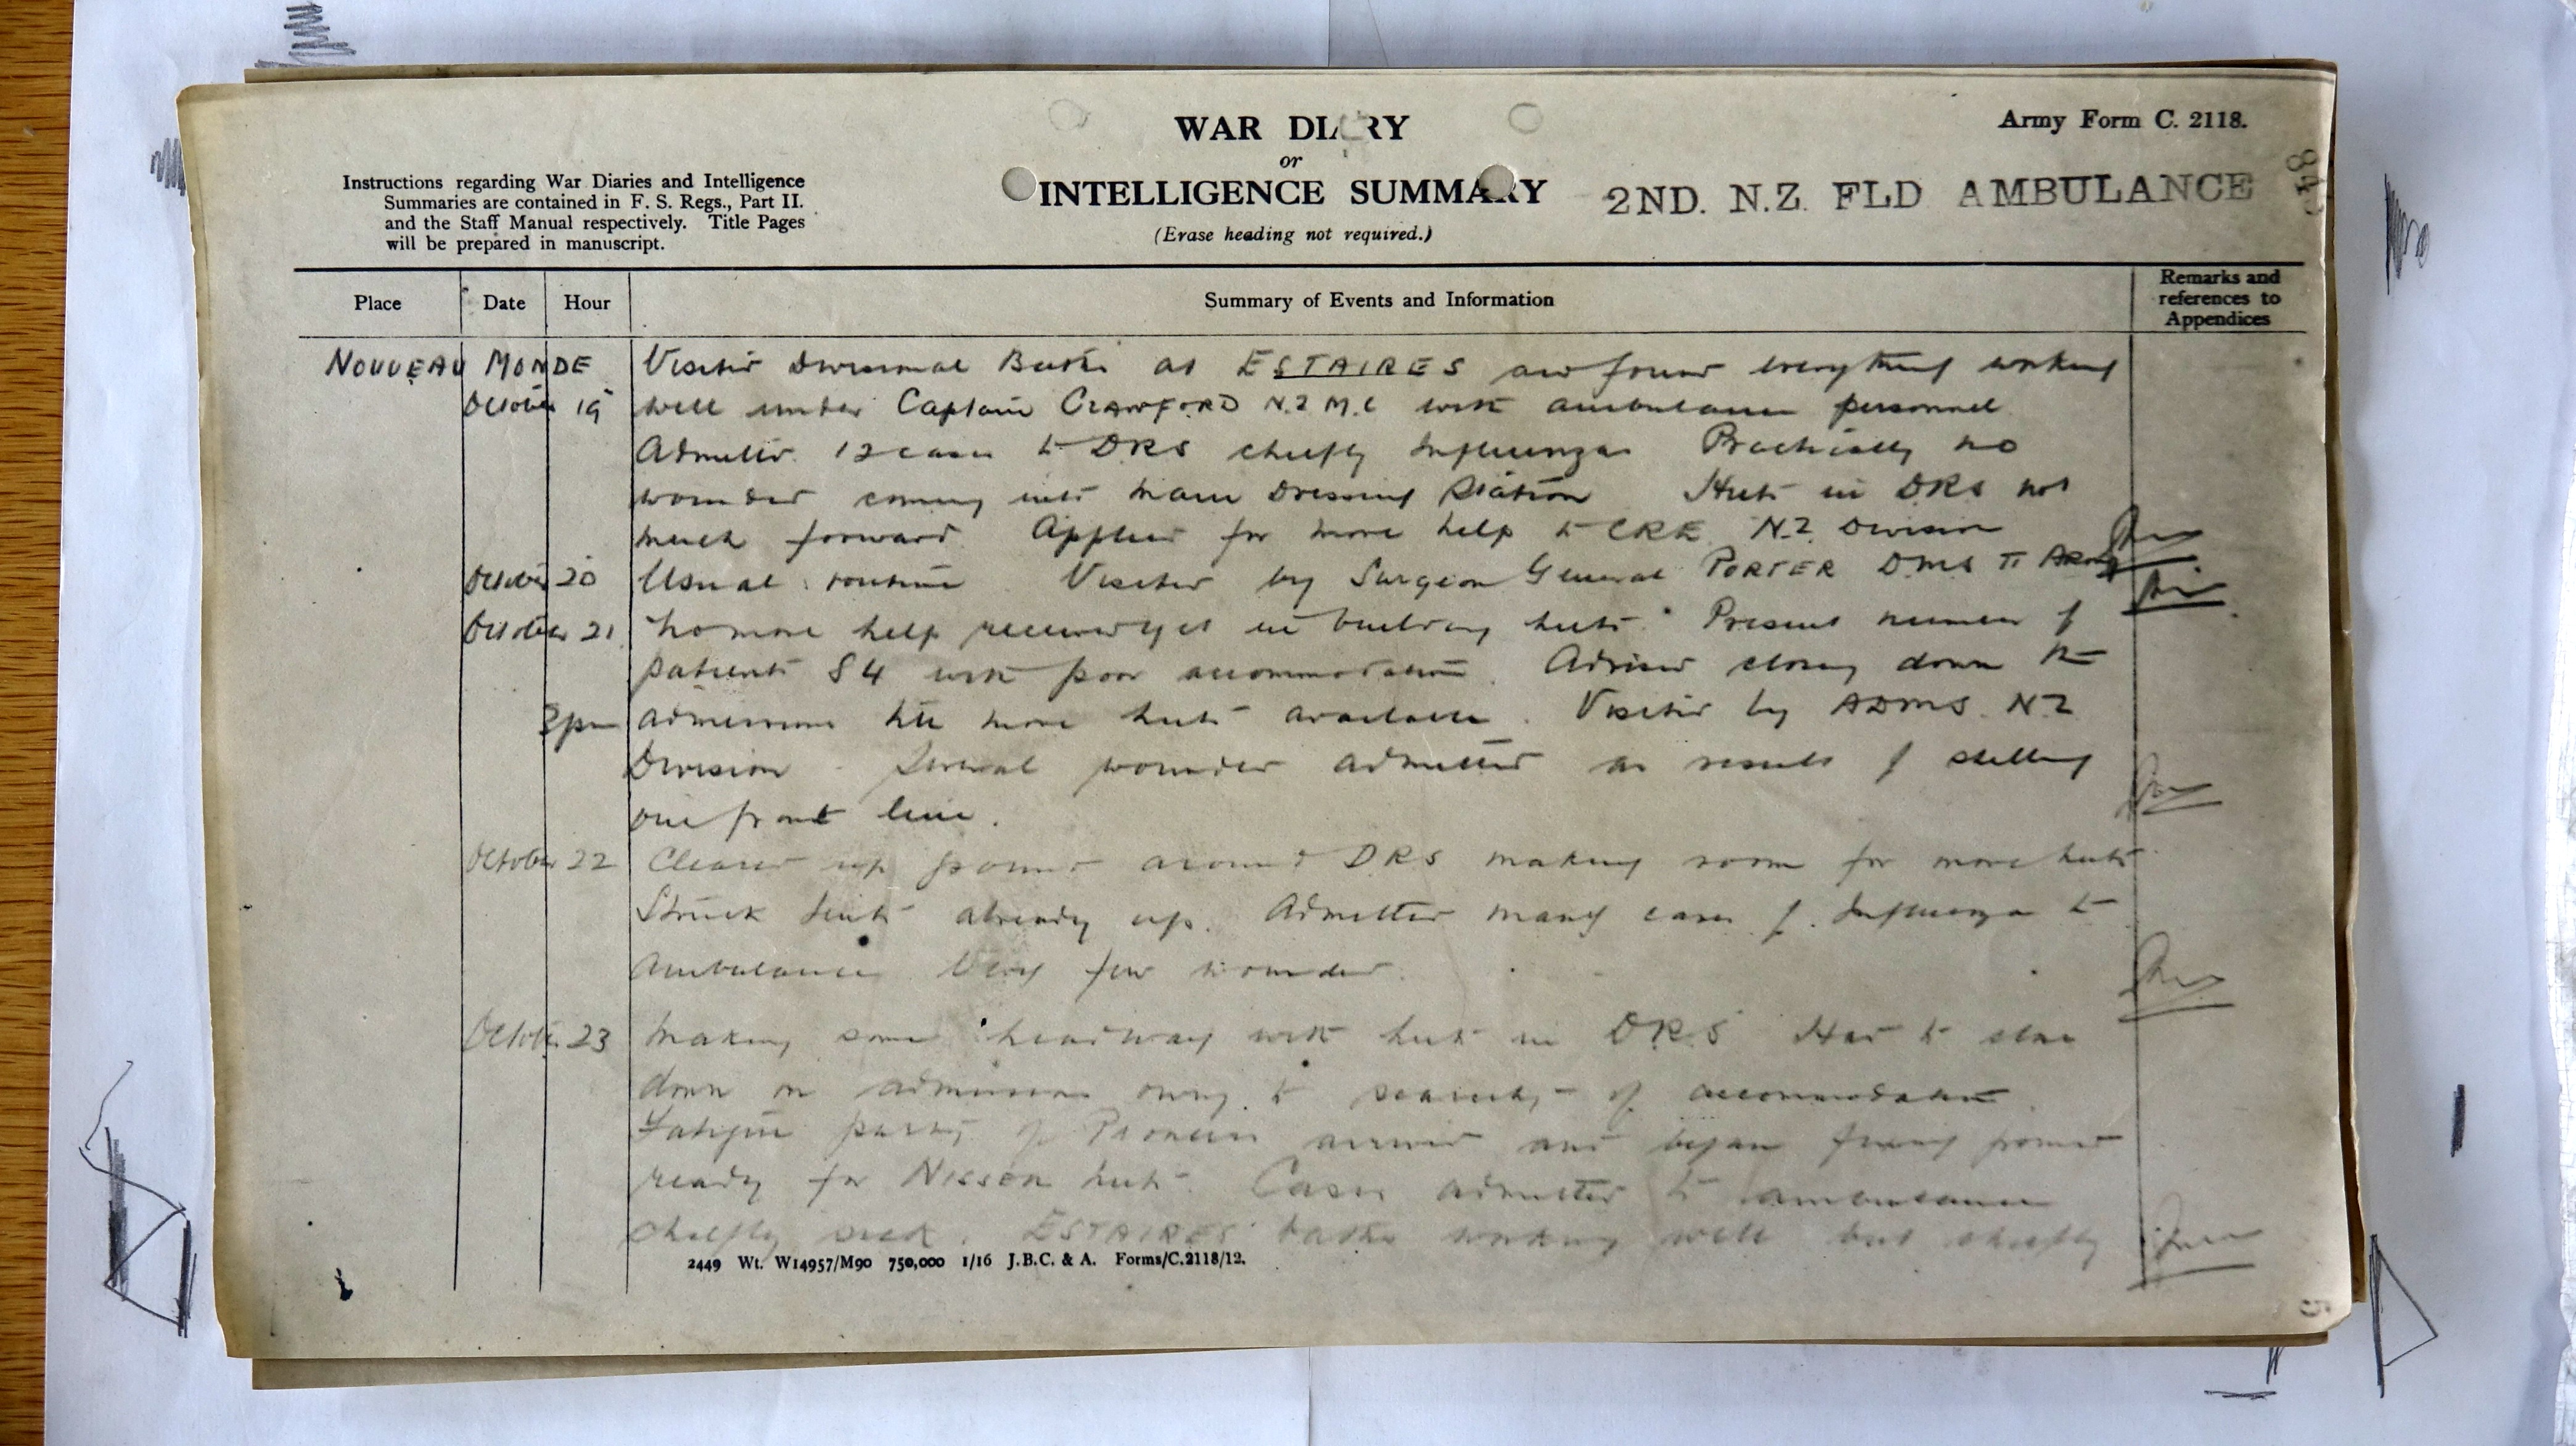 WAR DIARY
or
INTELLIGENCE SUMMARY
(Erase heading not required.)
Army Form C. 2118.
2ND. N.Z. FLD AMBULANCE
Instructions regarding War Diaries and Intelligence
Summaries are contained in F. S. Regs., Part II.
and the Staff Manual respectively. Title Pages
will be prepared in manuscript.
Place Date Hour Summary of Events and Information Remarks and references to Appendices
NOUVEAU MONDE Visited Divisional Baths at ESTAIRES and found everything working
October 19 well under Captain CRAWFORD N.Z M.C with ambulance personnel
Admitted 12 cases to DRS chiefly Influenza Practically no
wounded coming into Main Dressing Station Huts in DRS not
much forward. Applied for more help to CRE N.Z Division
October 20 Usual routine Visited by Surgeon General PORTER DMS II ARMY
October 21 No more help received yet in building huts. Present number of
patients 84 with poor accommodation. Advised closing down to
3pm admissions till more huts available. Visited by ADMS NZ
Division. Several wounded admitted as results of shelling
our front line.
October 22 Cleared up ground around DRS making room for more huts
Struck tents already up. Admitted many cases of Influenza to
ambulance Very few wounded.
October 23 Making some headway with huts in DRS Had to slow
down on admissions owing to scarcity of accommodation.
Fatigue party of Pioneers arrived and began ground
ready for Nissen huts. Cases admitted to ambulance
chiefly sick. ESTAIRES baths working well but chiefly
2449 Wt. W14957/M90 750,000 1/16 J.B.C. & A. Forms/C.2118/12.